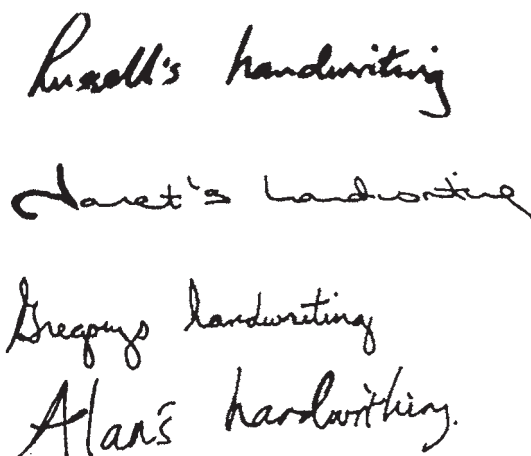 Russell's handwriting
Janet's handwriting
Gregorys handwriting
Alan's handwriting.